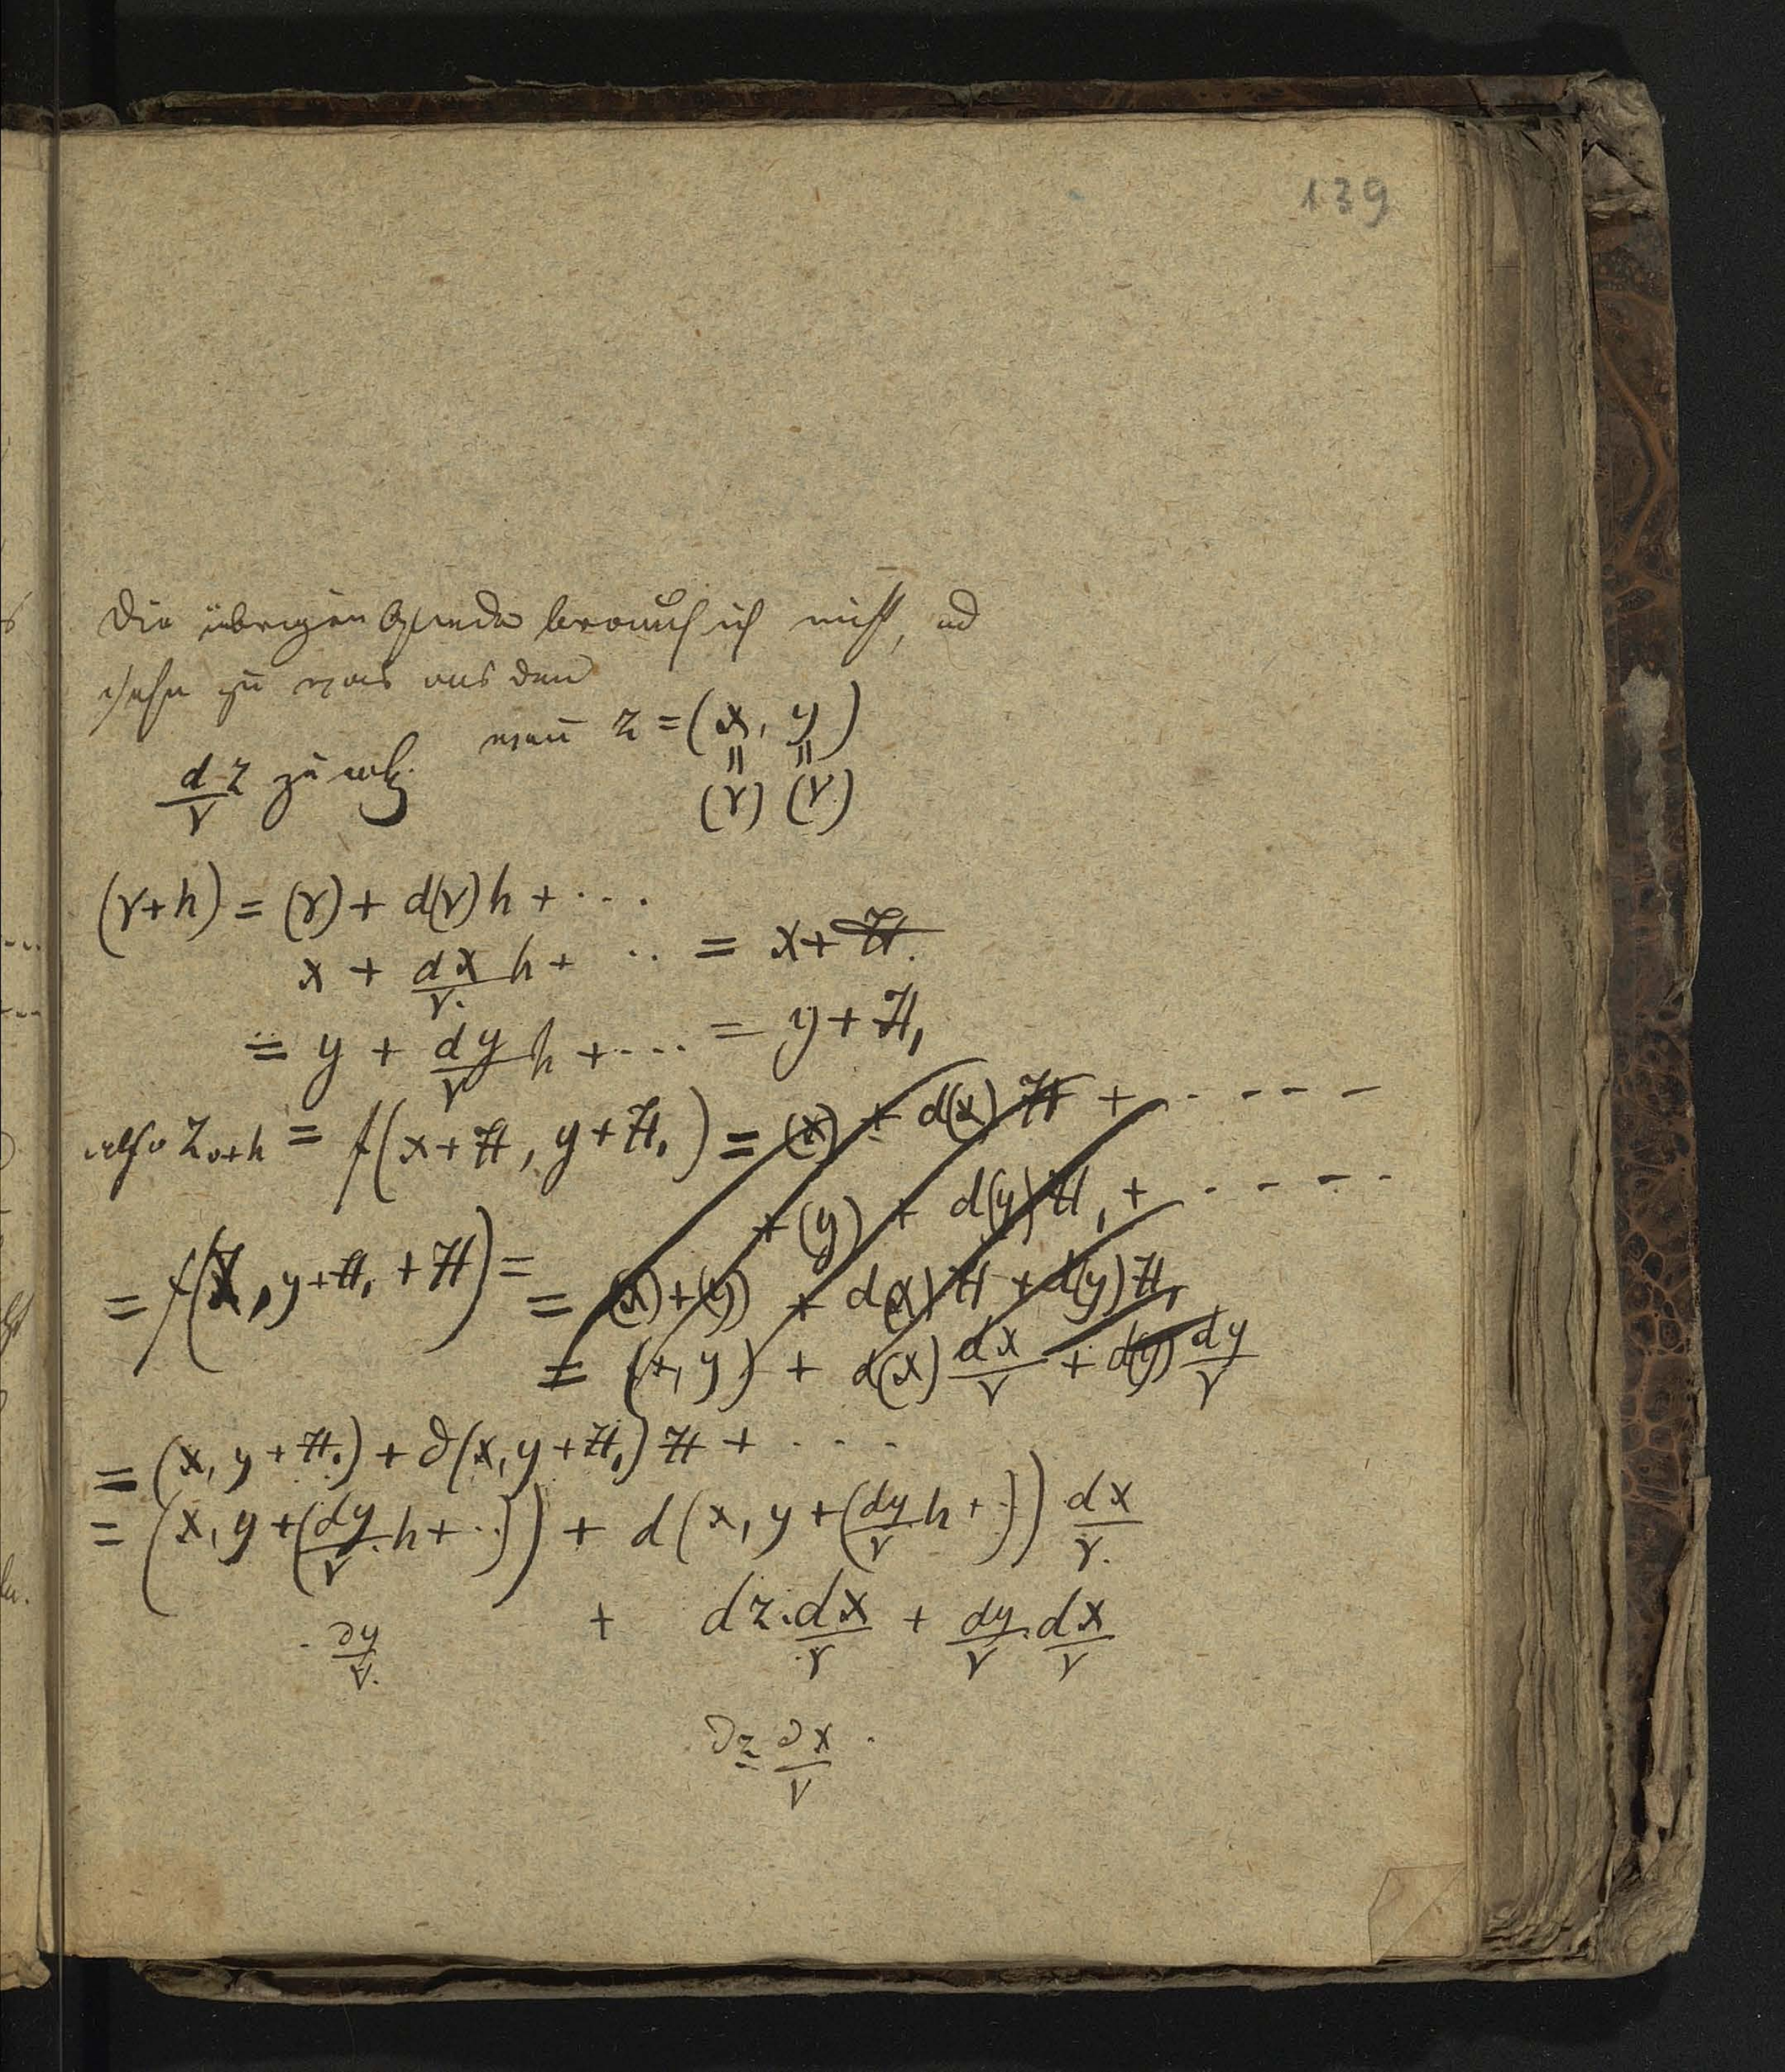 139
Die übrigen Glieder brauch ich nicht, und
sehn zu was aus den
wenn z = (x, y)
d z/v zu
= =
(v) (v)
(v+h) = (v) + d(v) h + ....
x + dx/v. h + .. = x + H.
= y + dy/v h + .... = y + H,
also z v+h = f(x+H, y+H,) = (x) + d(x) H + - - - -
+ (y) + d(y) H, + - - - -
= f(x, y+H, + H) =
= (x)+(y) + d(x) H + d(y) H,
= (x, y) + d(x) dx/v + d(y) dy/v
= (x, y + H,) + ∂(x, y+H,) H + . . . .
= (x, y + (dy/v. h + ..)) + d(x, y + (dy/v h + .)) dx/v.
+ dz. dx/v + dy/v. dx/v
∂y/v.
∂z ∂x/v .